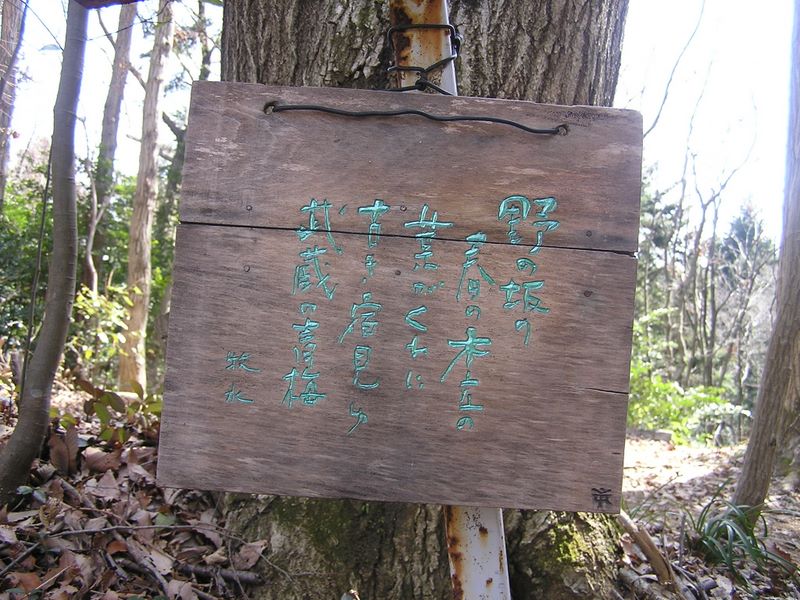 野の坂の
春の木立の
葉がくれに
古き宿見ゆ
武蔵の青梅
牧水